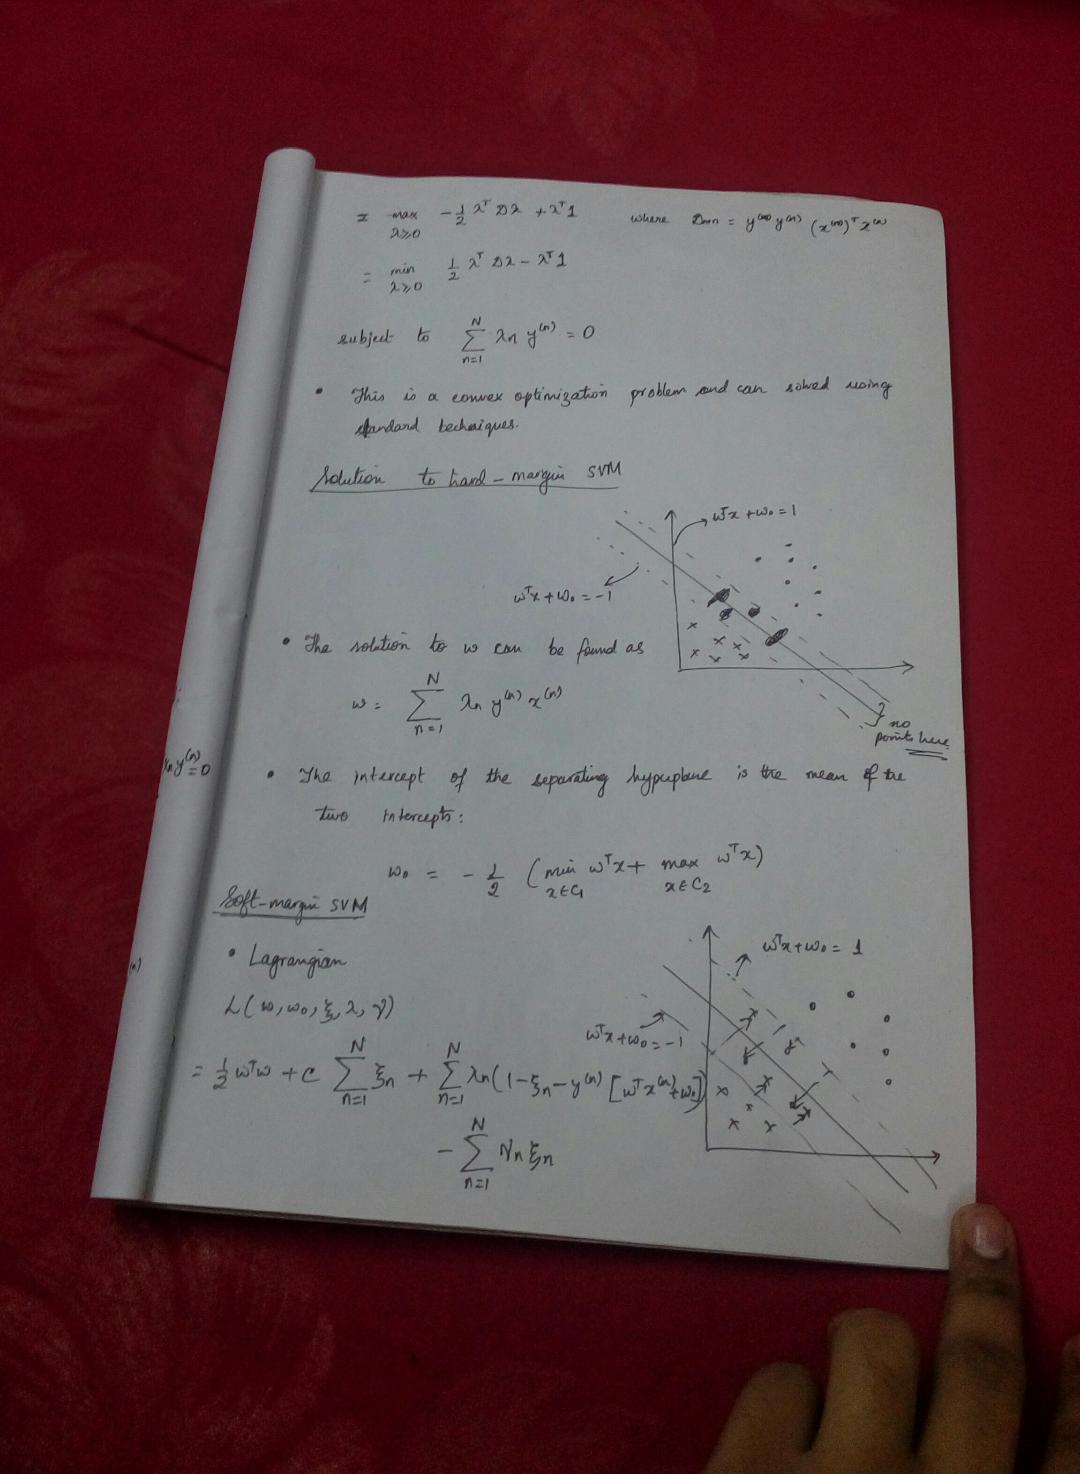 = max λ≥0 -1/2 λᵀDλ + λᵀ1 where Dmn = y⁽ᵐ⁾y⁽ⁿ⁾ (x⁽ᵐ⁾)ᵀ x⁽ⁿ⁾
= min λ≥0 1/2 λᵀDλ - λᵀ1
subject to ∑ₙ₌₁ᴺ λn y⁽ⁿ⁾ = 0
• This is a convex optimization problem and can solved using
standard techniques.
Solution to hard-margin SVM
wᵀx + w₀ = 1
wᵀx + w₀ = -1
• The solution to w can be found as
w = ∑ₙ₌₁ᴺ λn y⁽ⁿ⁾ x⁽ⁿ⁾
no
points here
λn y⁽ⁿ⁾ = 0
• The intercept of the separating hyperplane is the mean of the
two intercepts:
w₀ = -1/2 (min x∈C₁ wᵀx + max x∈C₂ wᵀx)
Soft-margin SVM
• Lagrangian
wᵀx + w₀ = 1
L(w, w₀, ξ, λ, γ)
wᵀx + w₀ = -1
= 1/2 wᵀw + C ∑ₙ₌₁ᴺ ξn + ∑ₙ₌₁ᴺ λn(1 - ξn - y⁽ⁿ⁾ [wᵀx⁽ⁿ⁾ + w₀])
- ∑ₙ₌₁ᴺ γn ξn